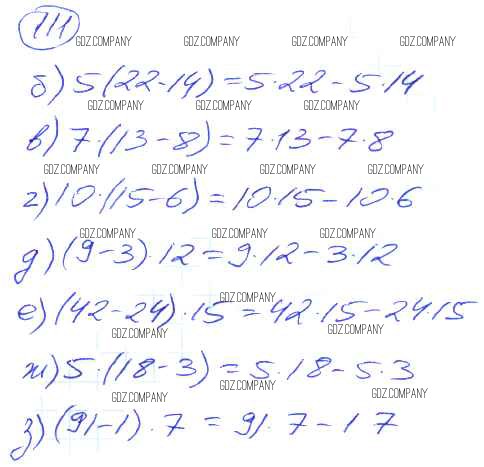 111
GDZ.COMPANY GDZ.COMPANY GDZ.COMPANY GDZ.COMPANY
б) 5(22-14)=5·22-5·14
GDZ.COMPANY GDZ.COMPANY GDZ.COMPANY
в) 7·(13-8)=7·13-7·8
GDZ.COMPANY GDZ.COMPANY GDZ.COMPANY GDZ.COMPANY
г) 10·(15-6)=10·15-10·6
GDZ.COMPANY GDZ.COMPANY GDZ.COMPANY
д) (9-3)·12=9·12-3·12
GDZ.COMPANY
е) (42-24)·15=42·15-24·15
GDZ.COMPANY GDZ.COMPANY
ж) 5·(18-3)=5·18-5·3
GDZ.COMPANY
GDZ.COMPANY GDZ.COMPANY
з) (91-1)·7=91·7-1 7